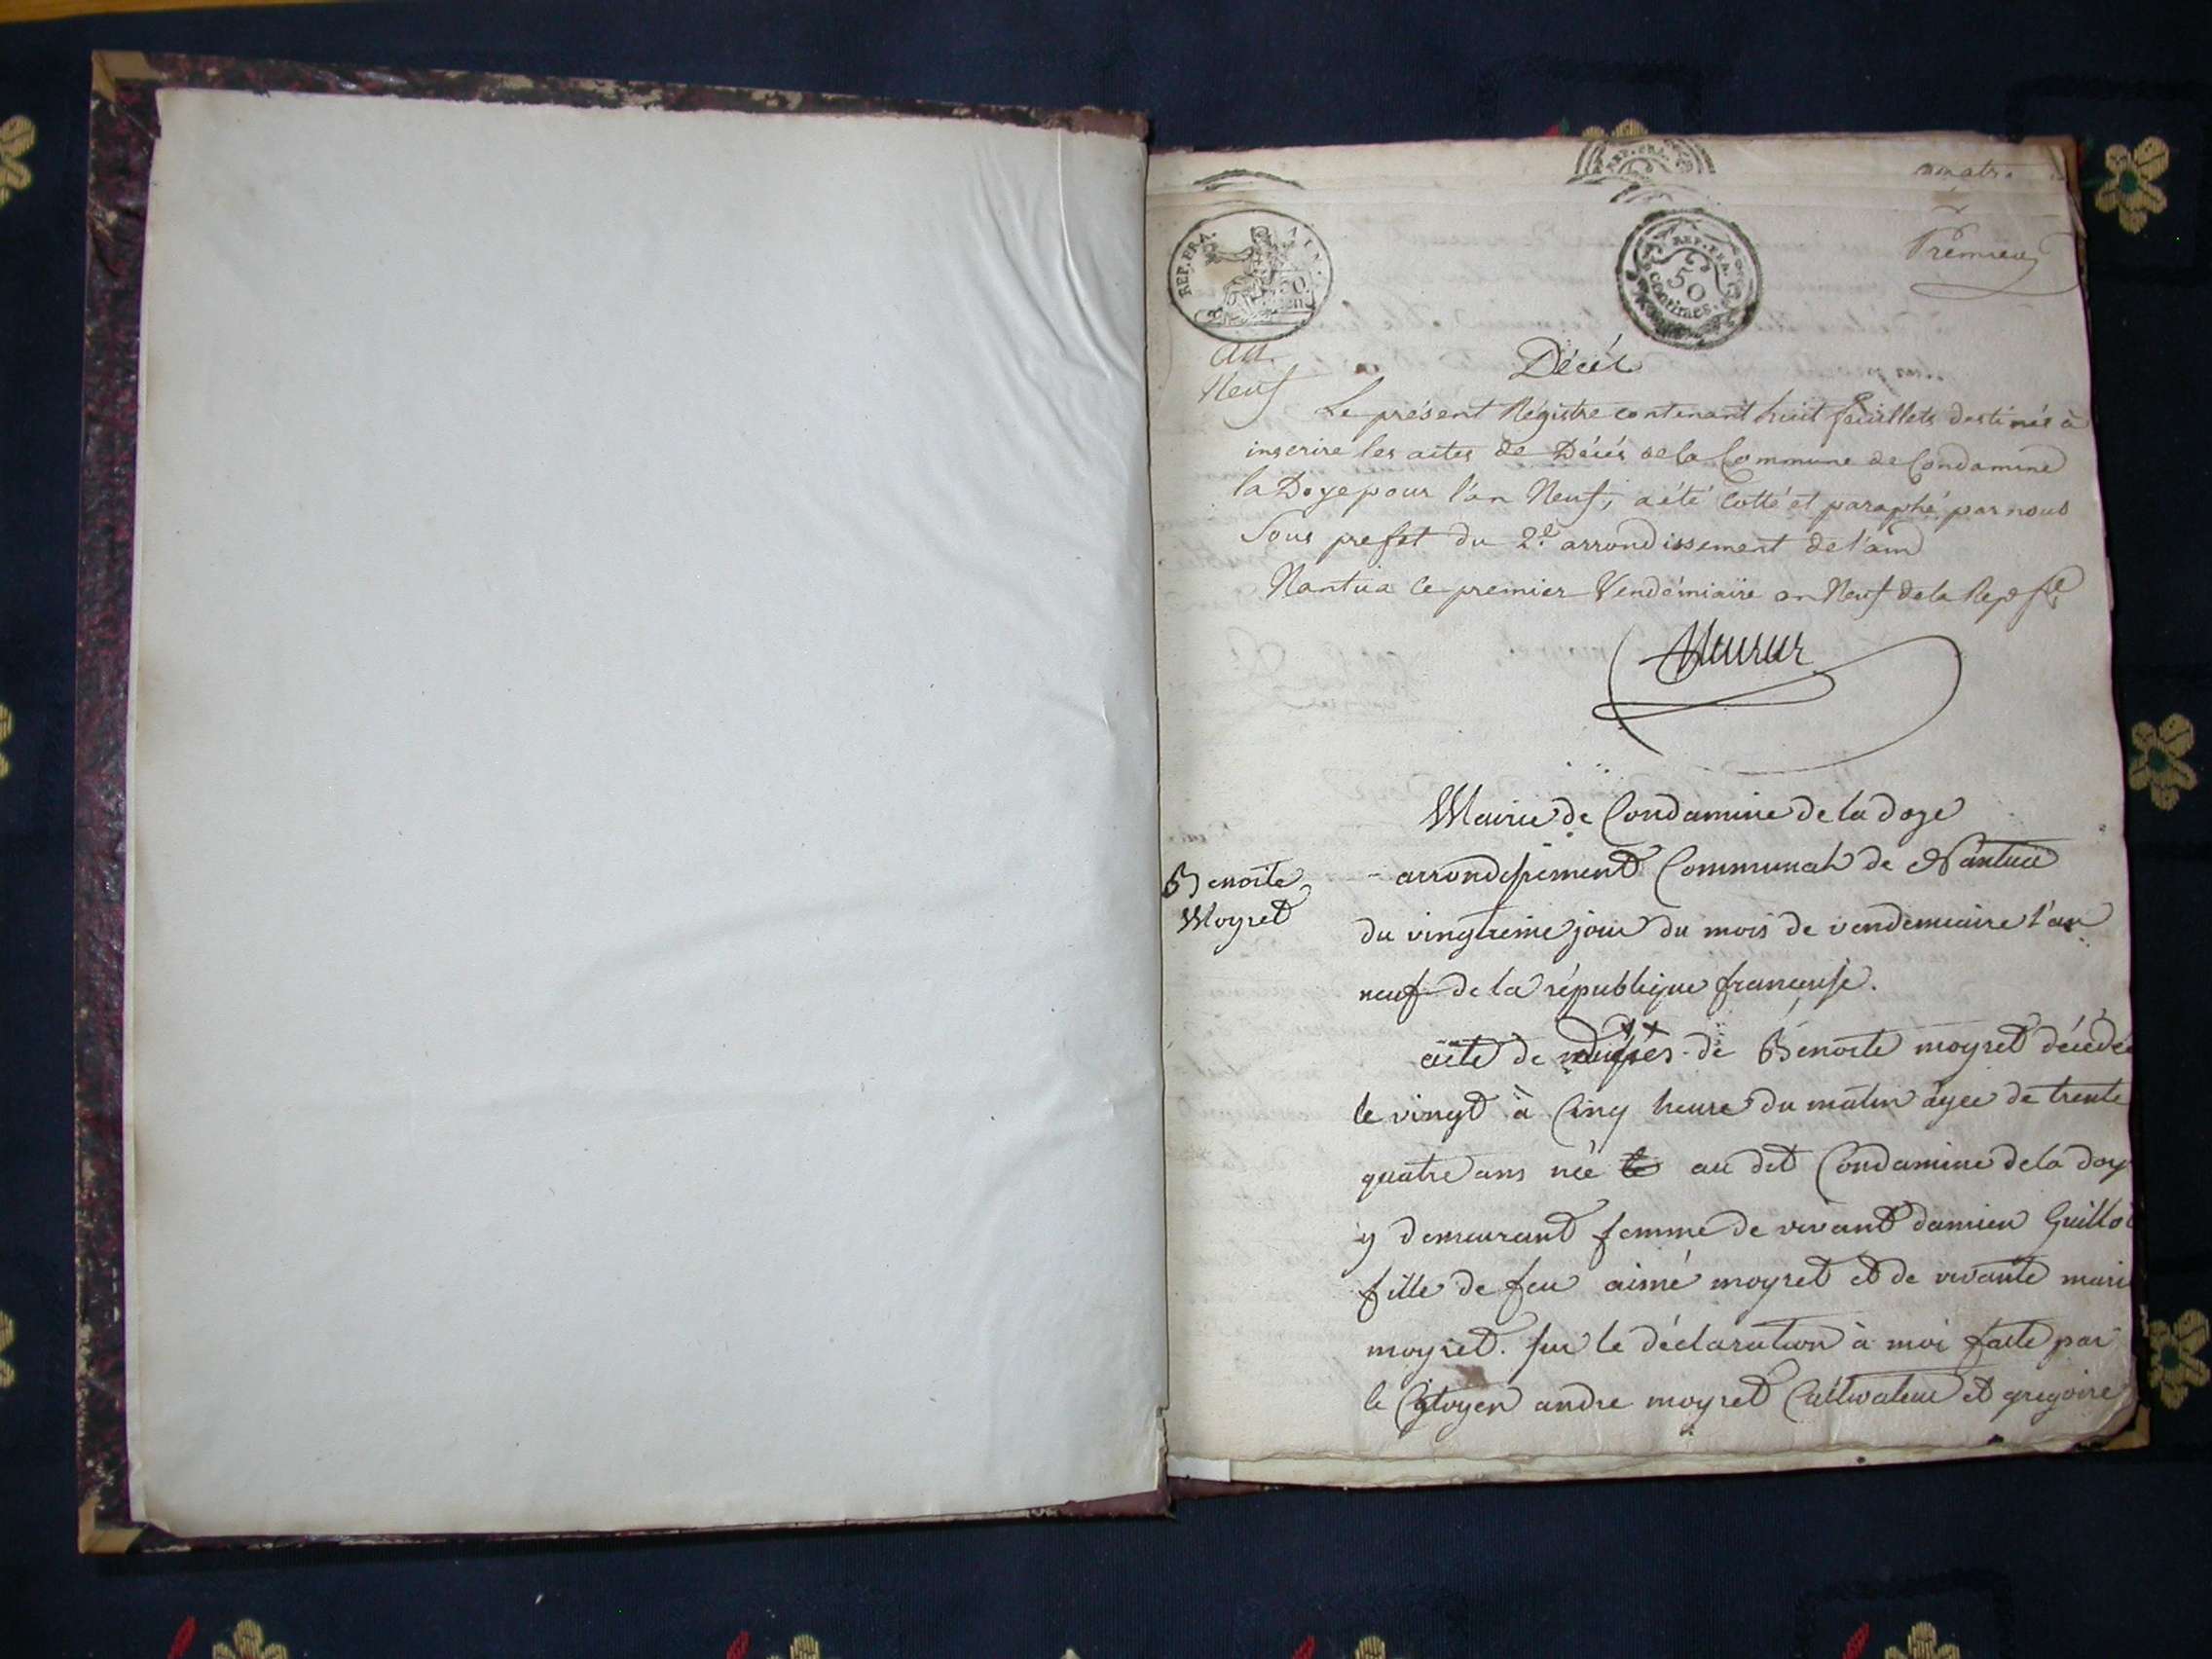 quatre
Premier
REP. FRA.
AIN.
REP. FRA.
50
centimes.
an
Neuf
Décès
Le présent Régistre contenant huit feuillets destinés à
inscrire les actes de Décès de la Commune de Condamine
la Doye pour l'an Neuf, a été cotté et paraphé par nous
Sous prefet du 2.e arrondissement de l'ain
Nantua le premier Vendémiaire an Neuf de la Rep fse
Mairie de Condamine de la doye
Benoite
Moyret
arrondissement Communal de Nantua
du vingtieme jour du mois de vendemiaire l'an
neuf de la république française.
acte de décès de Benoite moyret décédée
le vingt à Cinq heure du matin agee de trente
quatre ans née le au dit Condamine de la doy
y demeurant femme de vivant damien Guillot
fille de feu aimé moyret et de vivante mari
moyret. sur le déclaration à moi faite par
le Citoyen andre moyret Cultivateur et gregoire